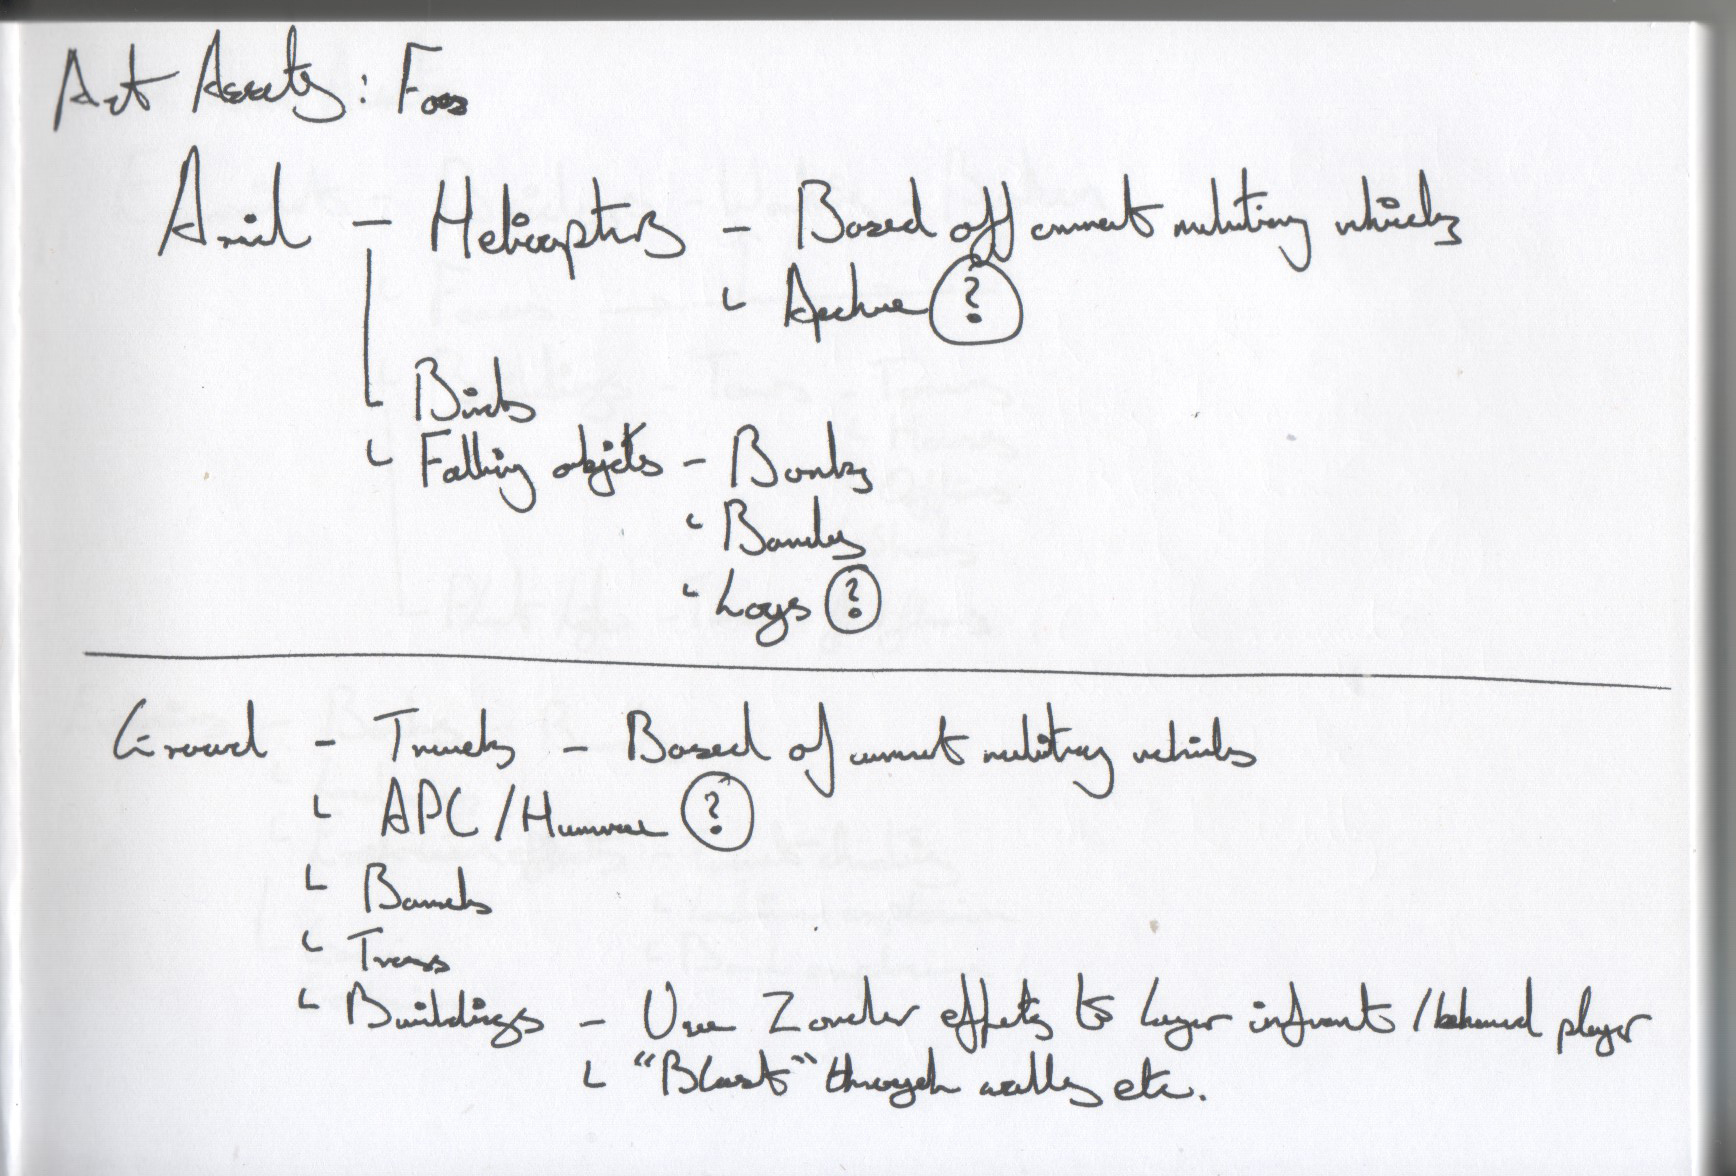 Art Assets: Foes
Aerial - Helicopters - Based off current military vehicles
Apache ?
Birds
Falling objects - Bombs
Barrels
Logs ?
Ground - Trucks - Based of current military vehicles
APC / Humvee ?
Barrels
Trees
Buildings - Use Z order effects to layer infront / behind player
"Blast" through walls etc.